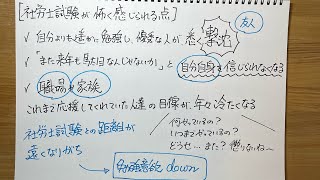 [社労士試験が怖く感じられる点]
友人
✓ 自分よりも遥かに勉強し、優秀な人が悉く撃沈
✓「また来年も駄目なんじゃないか」と自分自身を信じられなくなる
✓ 職場や家族
これまで応援してくれていた人達の目線が、年々冷たくなる
何やっているの?
いつまでやっているの?
どうせ…また?懲りないね〜
社労士試験との距離が
遠くなりがち
勉強意欲down